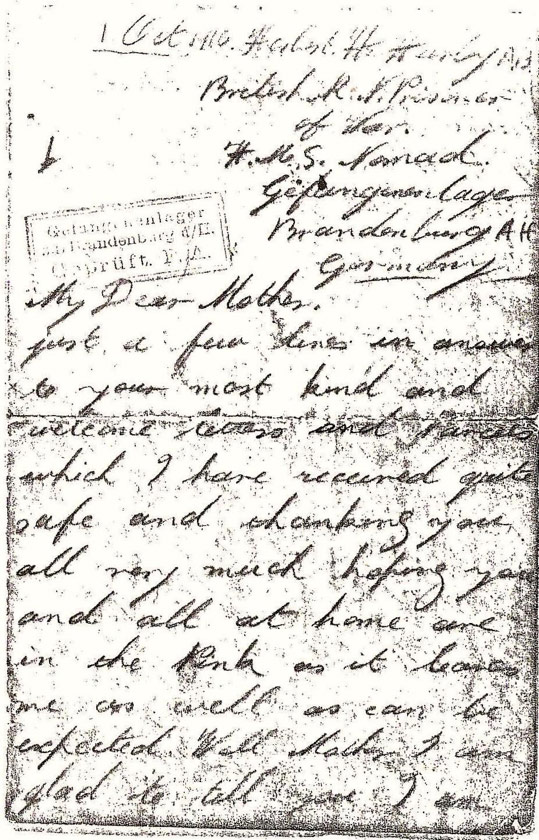 1 Oct 1916. Herbert. H.
British R. N. Prisoner
of War.
H. M. S. Nomad.
Gefangenenlager
Brandenburg A H
Germany
Gefangenenlager
Brandenburg a/H.
Geprüft. F. A.
My Dear Mother.
just a few lines in answer
to your most kind and
welcome letters and Parcels
which I have received quite
safe and thanking you
all very much hoping you
and all at home are
in the Pink as it leaves
me as well as can be
expected. Well Mother I am
glad to tell you I am